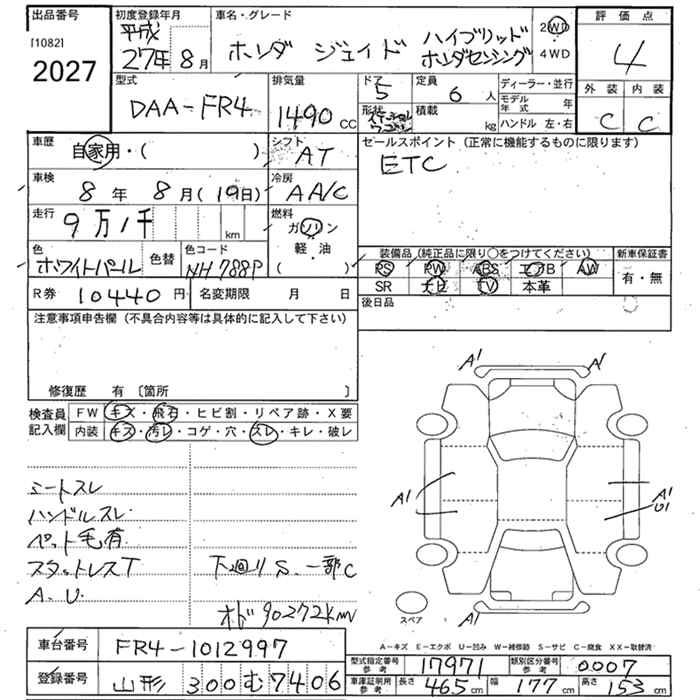 出品番号
[1082]
2027
初度登録年月
平成
27年8月
車名・グレード
ホンダ ジェイド ハイブリッド
ホンダセンシング
2WD
4WD
評価点
4
外装 内装
C C
型式
DAA-FR4
排気量
1490 CC
ドア
5
定員
6 人
形状
ステーションワゴン
積載
kg
ディーラー・並行
モデル年式 年
ハンドル 左・右
車歴
自家用・( )
シフト
AT
セールスポイント(正常に機能するものに限ります)
ETC
車検
8年 8月(19日)
冷房
AA/C
走行
9万1千 km
燃料
ガソリン
軽・油
( )
色
ホワイトパール
色替
色コード
NH788P
装備品(純正品に限り○をつけてください)
PS PW ABS エアB AW
SR ナビ TV 本革
新車保証書
有・無
R券 10440円
名変期限 月 日
後日品
注意事項申告欄(不具合内容等は具体的に記入して下さい)
修復歴 有〔箇所 〕
検査員
記入欄
FW キズ・飛石・ヒビ割・リペア跡・X要
内装 キズ・汚レ・コゲ・穴・スレ・キレ・破レ
シートスレ
ハンドルスレ
ペット毛有
スタットレスT
A.U.
下廻りS.一部C
オド90272km
A1 A1
A1
A1
U1
A1
スペア
A-キズ E-エクボ U-凹み W-補修跡 S-サビ C-腐食 XX-取替済
車台番号
FR4-1012997
登録番号
山形 300 む 7406
型式指定番号
参考
17971
類別区分番号
参考
0007
車庫証明用
参考
長さ 465 cm
幅 177 cm
高さ 153 cm